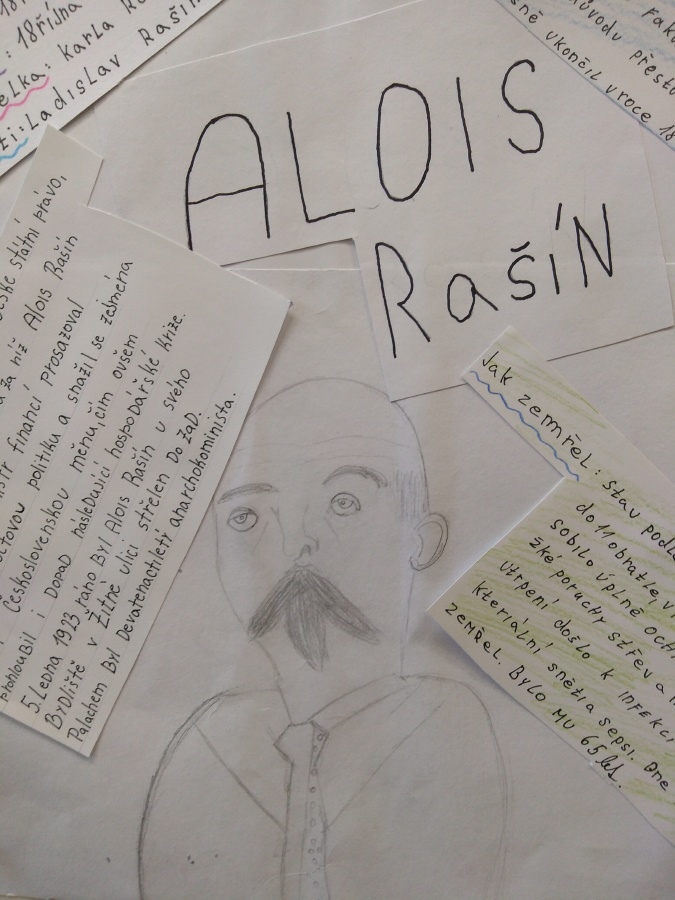 : 18října
elka: karla
ti: Ladislav Rašín
důvodu přesto
ně ukončil v roce 18
ALOIS
RAŠÍN
české státní právo,
a za niž Alois Rašín
financí prosazoval
politiku a snažil se zejména
Československou měnu, čím ovšem
prohloubil i dopad následující hospodářské krize.
5. Ledna 1923 ráno byl Alois Rašín u svého
Bydliště v Žitné ulici střelen do zad.
Palachem byl Devatenactiletý anarchokominista.
Jak zemřel: stav podle
do 11 obratle,
sobilo úplné
žké poruchy střev a
utrpení došlo k infekci
kteriální sněti a sepsi. Dne
zemřel. Bylo mu 65 let.